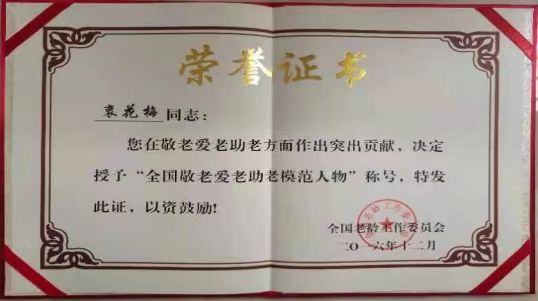 荣誉证书
袁花梅同志：
您在敬老爱老助老方面作出突出贡献，决定
授予“全国敬老爱老助老模范人物”称号，特发
此证，以资鼓励!
全国老龄工作委员会
二〇一六年十二月